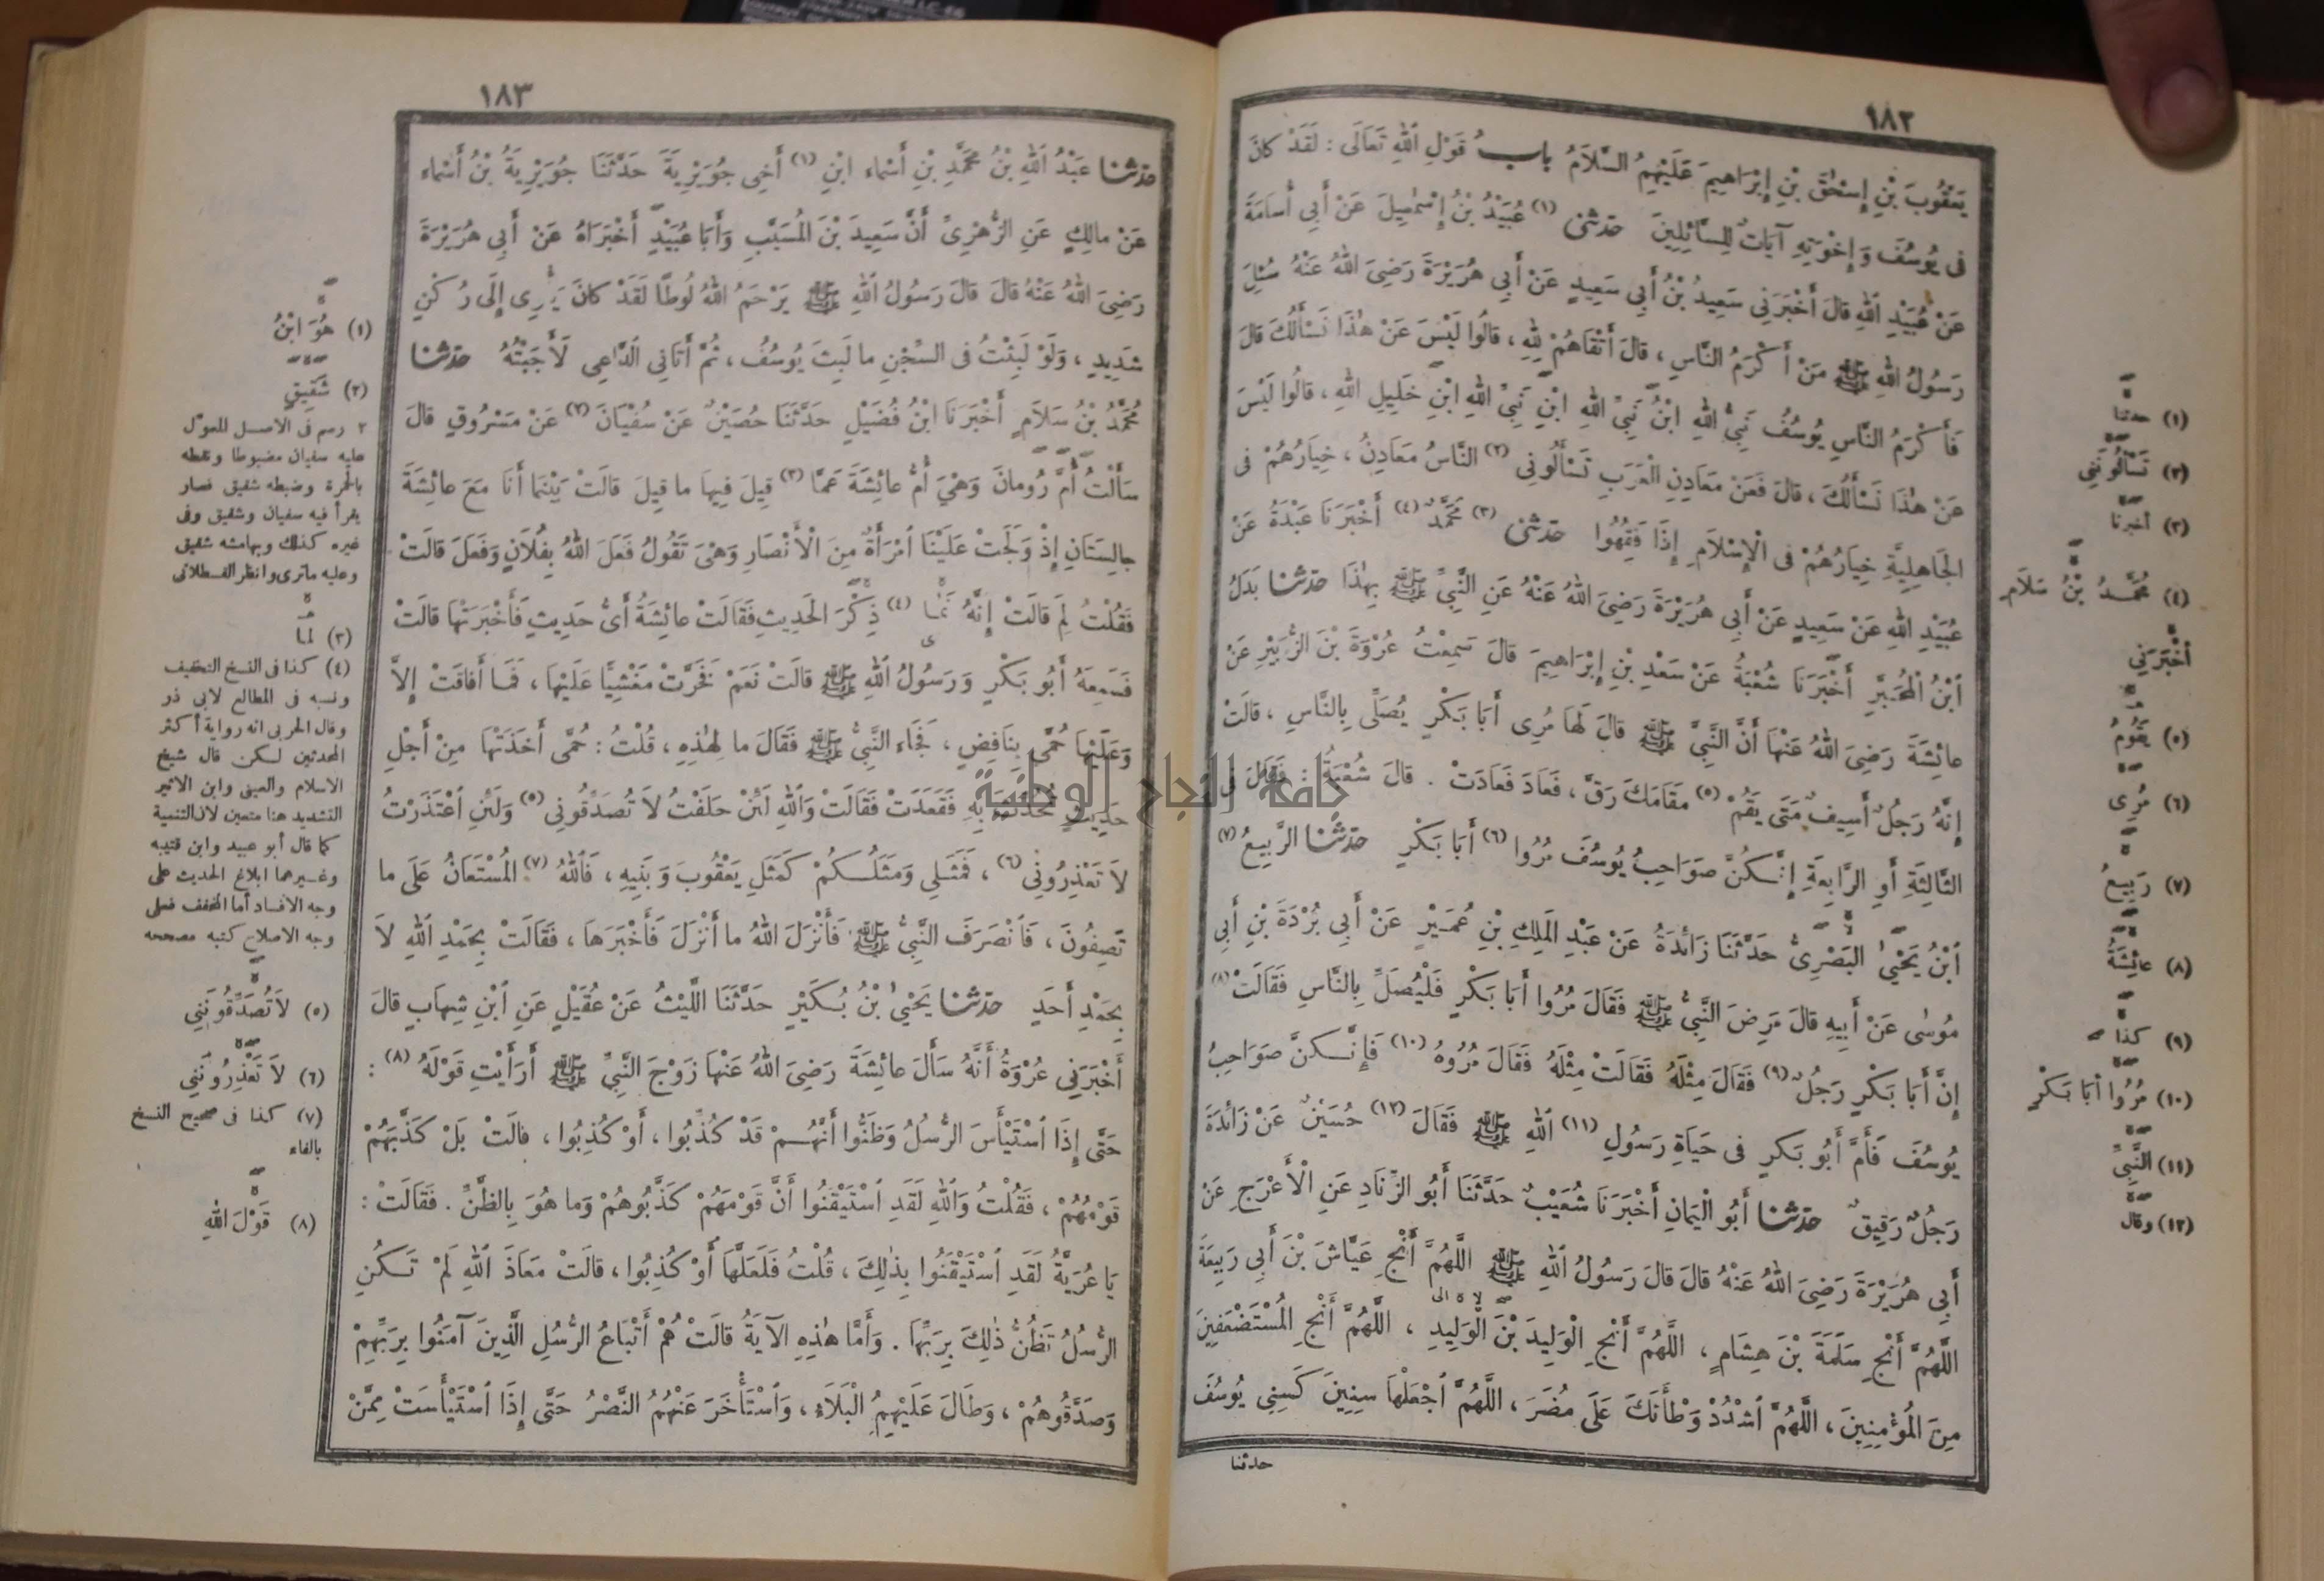 ١٨٢
يَعْقُوبَ بْنِ إِسْحٰقَ بْنِ إِبْرَاهِيمَ عَلَيْهِمُ السَّلاَمُ باب قَوْلِ اللهِ تَعَالَى : لَقَدْ كانَ
فى يُوسُفَ وَإِخْوَتِهِ آيَاتٌ لِلسَّائِلِينَ حدثنى (١) عُبَيْدُ بْنُ إِسْمٰعِيلَ عَنْ أَبِي أُسَامَةَ
عَنْ عُبَيْدِ اللهِ قالَ أَخْبَرَنِي سَعِيدُ بْنُ أَبِي سَعِيدٍ عَنْ أَبِي هُرَيْرَةَ رَضِيَ اللهُ عَنْهُ سُئِلَ
رَسُولُ اللهِ ﷺ مَنْ أَكْرَمُ النَّاسِ ، قالَ أَتْقَاهُمْ لِلهِ ، قالُوا لَيْسَ عَنْ هٰذَا نَسْأَلُكَ قالَ
فَأَكْرَمُ النَّاسِ يُوسُفُ نَبِيُّ اللهِ ابْنُ نَبِيِّ اللهِ ابْنِ نَبِيِّ اللهِ ابْنِ خَلِيلِ اللهِ ، قالُوا لَيْسَ
عَنْ هٰذَا نَسْأَلُكَ ، قالَ فَعَنْ مَعَادِنِ الْعَرَبِ تَسْأَلُونِى (٢) النَّاسُ مَعَادِنُ ، خِيَارُهُمْ فى
الجَاهِلِيَّةِ خِيَارُهُمْ فى الْإِسْلاَمِ إِذَا فَقِهُوا حدثنى (٣) مُحَمَّدٌ (٤) أَخْبَرَنَا عَبْدَةُ عَنْ
عُبَيْدِ اللهِ عَنْ سَعِيدٍ عَنْ أَبِي هُرَيْرَةَ رَضِيَ اللهُ عَنْهُ عَنِ النَّبِيِّ ﷺ بِهٰذَا حدثنا بَدَلُ
ابْنُ الْمُحَبَّرِ أَخْبَرَنَا شُعْبَةُ عَنْ سَعْدِ بْنِ إِبْرَاهِيمَ قالَ سَمِعْتُ عُرْوَةَ بْنَ الزُّبَيْرِ عَنْ
عائِشَةَ رَضِيَ اللهُ عَنْهَا أَنَّ النَّبِيَّ ﷺ قالَ لَهَا مُرِى أَبَا بَكْرٍ يُصَلِّى بِالنَّاسِ ، قالَتْ
إِنَّهُ رَجُلٌ أَسِيفٌ مَتَى يَقُمْ (٥) مَقَامَكَ رَقَّ ، فَعَادَ فَعَادَتْ . قالَ شُعْبَةُ : فَقَالَ فى
الثَّالِثَةِ أَوِ الرَّابِعَةِ إِنَّكُنَّ صَوَاحِبُ يُوسُفَ مُرُوا (٦) أَبَا بَكْرٍ حدثنا الرَّبِيعُ (٧)
ابْنُ يَحْيىٰ البَصْرِىُّ حَدَّثَنَا زَائِدَةُ عَنْ عَبْدِ المَلِكِ بْنِ عُمَيْرٍ عَنْ أَبِي بُرْدَةَ بْنِ أَبِي
مُوسٰى عَنْ أَبِيهِ قالَ مَرِضَ النَّبِيُّ ﷺ فَقَالَ مُرُوا أَبَا بَكْرٍ فَلْيُصَلِّ بِالنَّاسِ فَقَالَتْ (٨)
إِنَّ أَبَا بَكْرٍ رَجُلٌ (٩) فَقَالَ مِثْلَهُ فَقَالَتْ مِثْلَهُ فَقَالَ مُرُوهُ (١٠) فَإِنَّكُنَّ صَوَاحِبُ
يُوسُفَ فَأَمَّ أَبُو بَكرٍ فى حَيَاةِ رَسُولِ (١١) اللهِ ﷺ فَقَالَ (١٢) حُسَيْنٌ عَنْ زَائِدَةَ
رَجُلٌ رَقِيقٌ حدثنا أَبُو الْيَمَانِ أَخْبَرَنَا شُعَيْبٌ حَدَّثَنَا أَبُو الزِّنَادِ عَنِ الْأَعْرَجِ عَنْ
أَبِي هُرَيْرَةَ رَضِيَ اللهُ عَنْهُ قالَ قالَ رَسُولُ اللهِ ﷺ اللَّهُمَّ أَنْجِ عَيَّاشَ بْنَ أَبِي رَبِيعَةَ
اللَّهُمَّ أَنْجِ سَلَمَةَ بْنَ هِشَامٍ ، اللَّهُمَّ أَنْجِ الْوَلِيدَ بْنَ الْوَلِيدِ ، اللَّهُمَّ أَنْجِ المُسْتَضْعَفِينَ
مِنَ المُؤْمِنِينَ ، اللَّهُمَّ اشْدُدْ وَطْأَتَكَ عَلَى مُضَرَ ، اللَّهُمَّ اجْعَلْهَا سِنِينَ كَسِنِي يُوسُفَ
حدثنا
(١) حدثنا
(٢) تَسْأَلُونَنِي
(٣) أخبرنا
(٤) مُحَمَّدُ بْنُ سَلاَمٍ
أَخْبَرَنِي
(٥) يَقُومُ
(٦) مُرِى
(٧) رَبِيعُ
(٨) عائِشَةُ
(٩) كذا
(١٠) مُرُوا أَبَا بَكْرٍ
(١١) النَّبِيِّ
(١٢) وقال
١٨٣
حدثنا عَبْدُ اللهِ بْنُ مُحَمَّدِ بْنِ أَسْمَاء ابْنِ (١) أَخِى جُوَيْرِيَةَ حَدَّثَنَا جُوَيْرِيَةُ بْنُ أَسْمَاء
عَنْ مالِكٍ عَنِ الزُّهْرِيِّ أَنَّ سَعِيدَ بْنَ الْمُسَيَّبِ وَأَبَا عُبَيْدٍ أَخْبَرَاهُ عَنْ أَبِي هُرَيْرَةَ
رَضِيَ اللهُ عَنْهُ قالَ قالَ رَسُولُ اللهِ ﷺ يَرْحَمُ اللهُ لُوطًا لَقَدْ كانَ يَأْوِى إِلَى رُكْنٍ
شَدِيدٍ ، وَلَوْ لَبِثْتُ فى السِّجْنِ ما لَبِثَ يُوسُفُ ، ثُمَّ أَتَانِي الدَّاعِى لَأَجَبْتُهُ حدثنا
مُحَمَّدُ بْنُ سَلاَمٍ أَخْبَرَنَا ابْنُ فُضَيْلٍ حَدَّثَنَا حُصَيْنٌ عَنْ سُفْيَانَ (٢) عَنْ مَسْرُوقٍ قالَ
سَأَلْتُ أُمَّ رُومانَ وَهْيَ أُمُّ عائِشَةَ عَمَّا (٣) قِيلَ فِيهَا ما قِيلَ قالَتْ بَيْنَمَا أَنَا مَعَ عائِشَةَ
جالِسَتَانِ إِذْ وَلَجَتْ عَلَيْنَا امْرَأَةٌ مِنَ الْأَنْصَارِ وَهْىَ تَقُولُ فَعَلَ اللهُ بِفُلاَنٍ وَفَعَلَ قالَتْ
فَقُلْتُ لِمَ قالَتْ إِنَّهُ نَمَّا (٤) ذِكْرَ الحَدِيثِ فَقَالَتْ عائِشَةُ أَىُّ حَدِيثٍ فَأَخْبَرَتْهَا قالَتْ
فَسَمِعَهُ أَبُو بَكْرٍ وَرَسُولُ اللهِ ﷺ قالَتْ نَعَمْ فَخَرَّتْ مَغْشِيًّا عَلَيْهَا ، فَمَا أَفاقَتْ إِلاَّ
وَعَلَيْهَا حُمَّى بِنَافِضٍ ، فَجَاء النَّبِيُّ ﷺ فَقَالَ ما لِهٰذِهِ ، قُلْتُ : حُمَّى أَخَذَتْهَا مِنْ أَجْلِ
حَدِيثٍ تُحُدِّثَ بِهِ فَقَعَدَتْ فَقَالَتْ وَاللهِ لَئِنْ حَلَفْتُ لاَ تُصَدِّقُونِي (٥) وَلَئِنِ اعْتَذَرْتُ
لاَ تَعْذِرُونِي (٦) ، فَمَثَلِي وَمَثَلُكُمْ كَمَثَلِ يَعْقُوبَ وَبَنِيهِ ، فَاللهُ (٧) المُسْتَعَانُ عَلَى ما
تَصِفُونَ ، فَانْصَرَفَ النَّبِيُّ ﷺ فَأَنْزَلَ اللهُ ما أَنْزَلَ فَأَخْبَرَهَا ، فَقَالَتْ بِحَمْدِ اللهِ لاَ
بِحَمْدِ أَحَدٍ حدثنا يَحْيىٰ بْنُ بُكَيْرٍ حَدَّثَنَا اللَّيْثُ عَنْ عُقَيْلٍ عَنِ ابْنِ شِهَابٍ قالَ
أَخْبَرَنِي عُرْوَةُ أَنَّهُ سَأَلَ عائِشَةَ رَضِيَ اللهُ عَنْهَا زَوْجَ النَّبِيِّ ﷺ أَرَأَيْتِ قَوْلَهُ (٨) :
حَتَّى إِذَا اسْتَيْأَسَ الرُّسُلُ وَظَنُّوا أَنَّهُمْ قَدْ كُذِّبُوا ، أَوْ كُذِبُوا ، قالَتْ بَلْ كَذَّبَهُمْ
قَوْمُهُمْ ، فَقُلْتُ وَاللهِ لَقَدِ اسْتَيْقَنُوا أَنَّ قَوْمَهُمْ كَذَّبُوهُمْ وَما هُوَ بِالظَّنِّ . فَقَالَتْ :
يَا عُرَيَّةُ لَقَدِ اسْتَيْقَنُوا بِذٰلِكَ ، قُلْتُ فَلَعَلَّهَا أَوْ كُذِبُوا ، قالَتْ مَعَاذَ اللهِ لَمْ تَكُنِ
الرُّسُلُ تَظُنُّ ذٰلِكَ بِرَبِّهَا . وَأَمَّا هٰذِهِ الآيَةُ قالَتْ هُمْ أَتْبَاعُ الرُّسُلِ الَّذِينَ آمَنُوا بِرَبِّهِمْ
وَصَدَّقُوهُمْ ، وَطَالَ عَلَيْهِمُ الْبَلاَءُ ، وَاسْتَأْخَرَ عَنْهُمُ النَّصْرُ حَتَّى إِذَا اسْتَيْأَسَتْ مِمَّنْ
(١) هُوَ ابْنُ
(٢) شَقِيقٍ
٢ رسم فى الاصل المعول
عليه سفيان مضبوطا ونقطه
بالحمرة وضبطه شقيق فصار
يقرأ فيه سفيان وشقيق وفى
غيره كذلك وبهامشه شقيق
وعليه ماترى وانظر القسطلانى
(٣) لما
(٤) كذا فى النسخ التخفيف
ونسبه فى المطالع لابى ذر
وقال الحربى انه رواية أكثر
المحدثين لكن قال شيخ
الاسلام والعينى وابن الاثير
التشديد هنا متعين لان التنمية
كما قال أبو عبيد وابن قتيبه
وغيرهما ابلاغ الحديث على
وجه الافساد أما المخفف فعلى
وجه الاصلاح كتبه مصححه
(٥) لاَ تُصَدِّقُونَنِي
(٦) لاَ تَعْذِرُونَنِي
(٧) كذا فى صحيح النسخ
بالفاء
(٨) قَوْلَ اللهِ
جامعة النجاح الوطنية